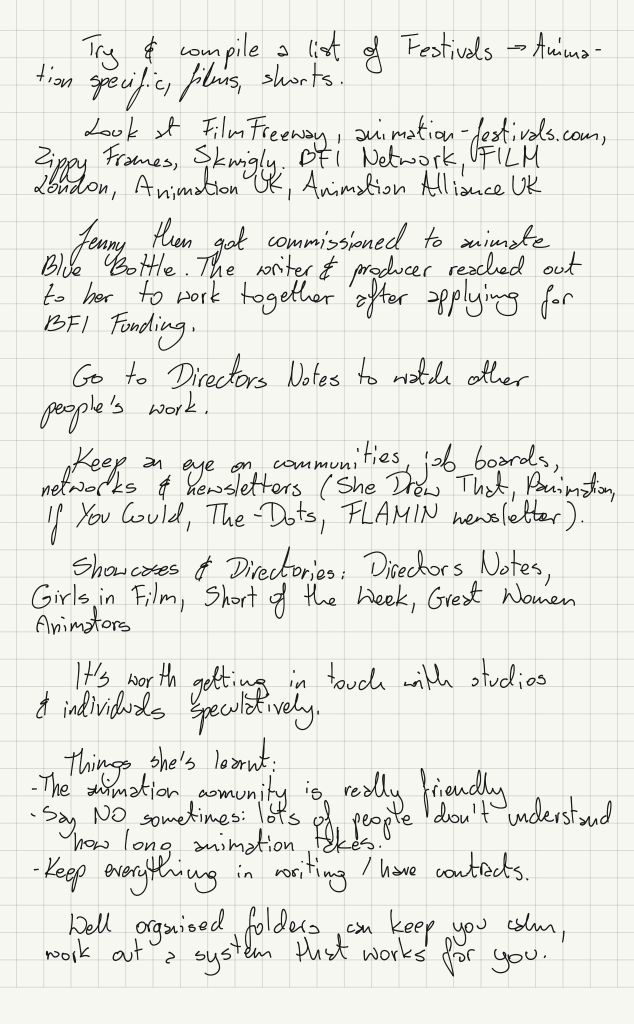 Try & compile a list of Festivals → Anima-
tion specific, films, shorts.
Look at FilmFreeway, animation-festivals.com,
Zippy Frames, Skwigly. BFI Network, FILM
London, Animation UK, Animation Alliance UK
Jenny then got commissioned to animate
Blue Bottle. The writer & producer reached out
to her to work together after applying for
BFI Funding.
Go to Directors Notes to watch other
people's work.
Keep an eye on communities, job boards,
networks & newsletters (She Drew That, Panimation,
If You Could, The-Dots, FLAMIN newsletter).
Showcases & Directories: Directors Notes,
Girls in Film, Short of the Week, Great Women
Animators
It's worth getting in touch with studios
& individuals speculatively.
Things she's learnt:
-The animation comunity is really friendly
-Say NO sometimes: lots of people don't understand
how long animation takes.
-Keep everything in writing / have contracts.
Well organised folders can keep you calm,
work out a system that works for you.